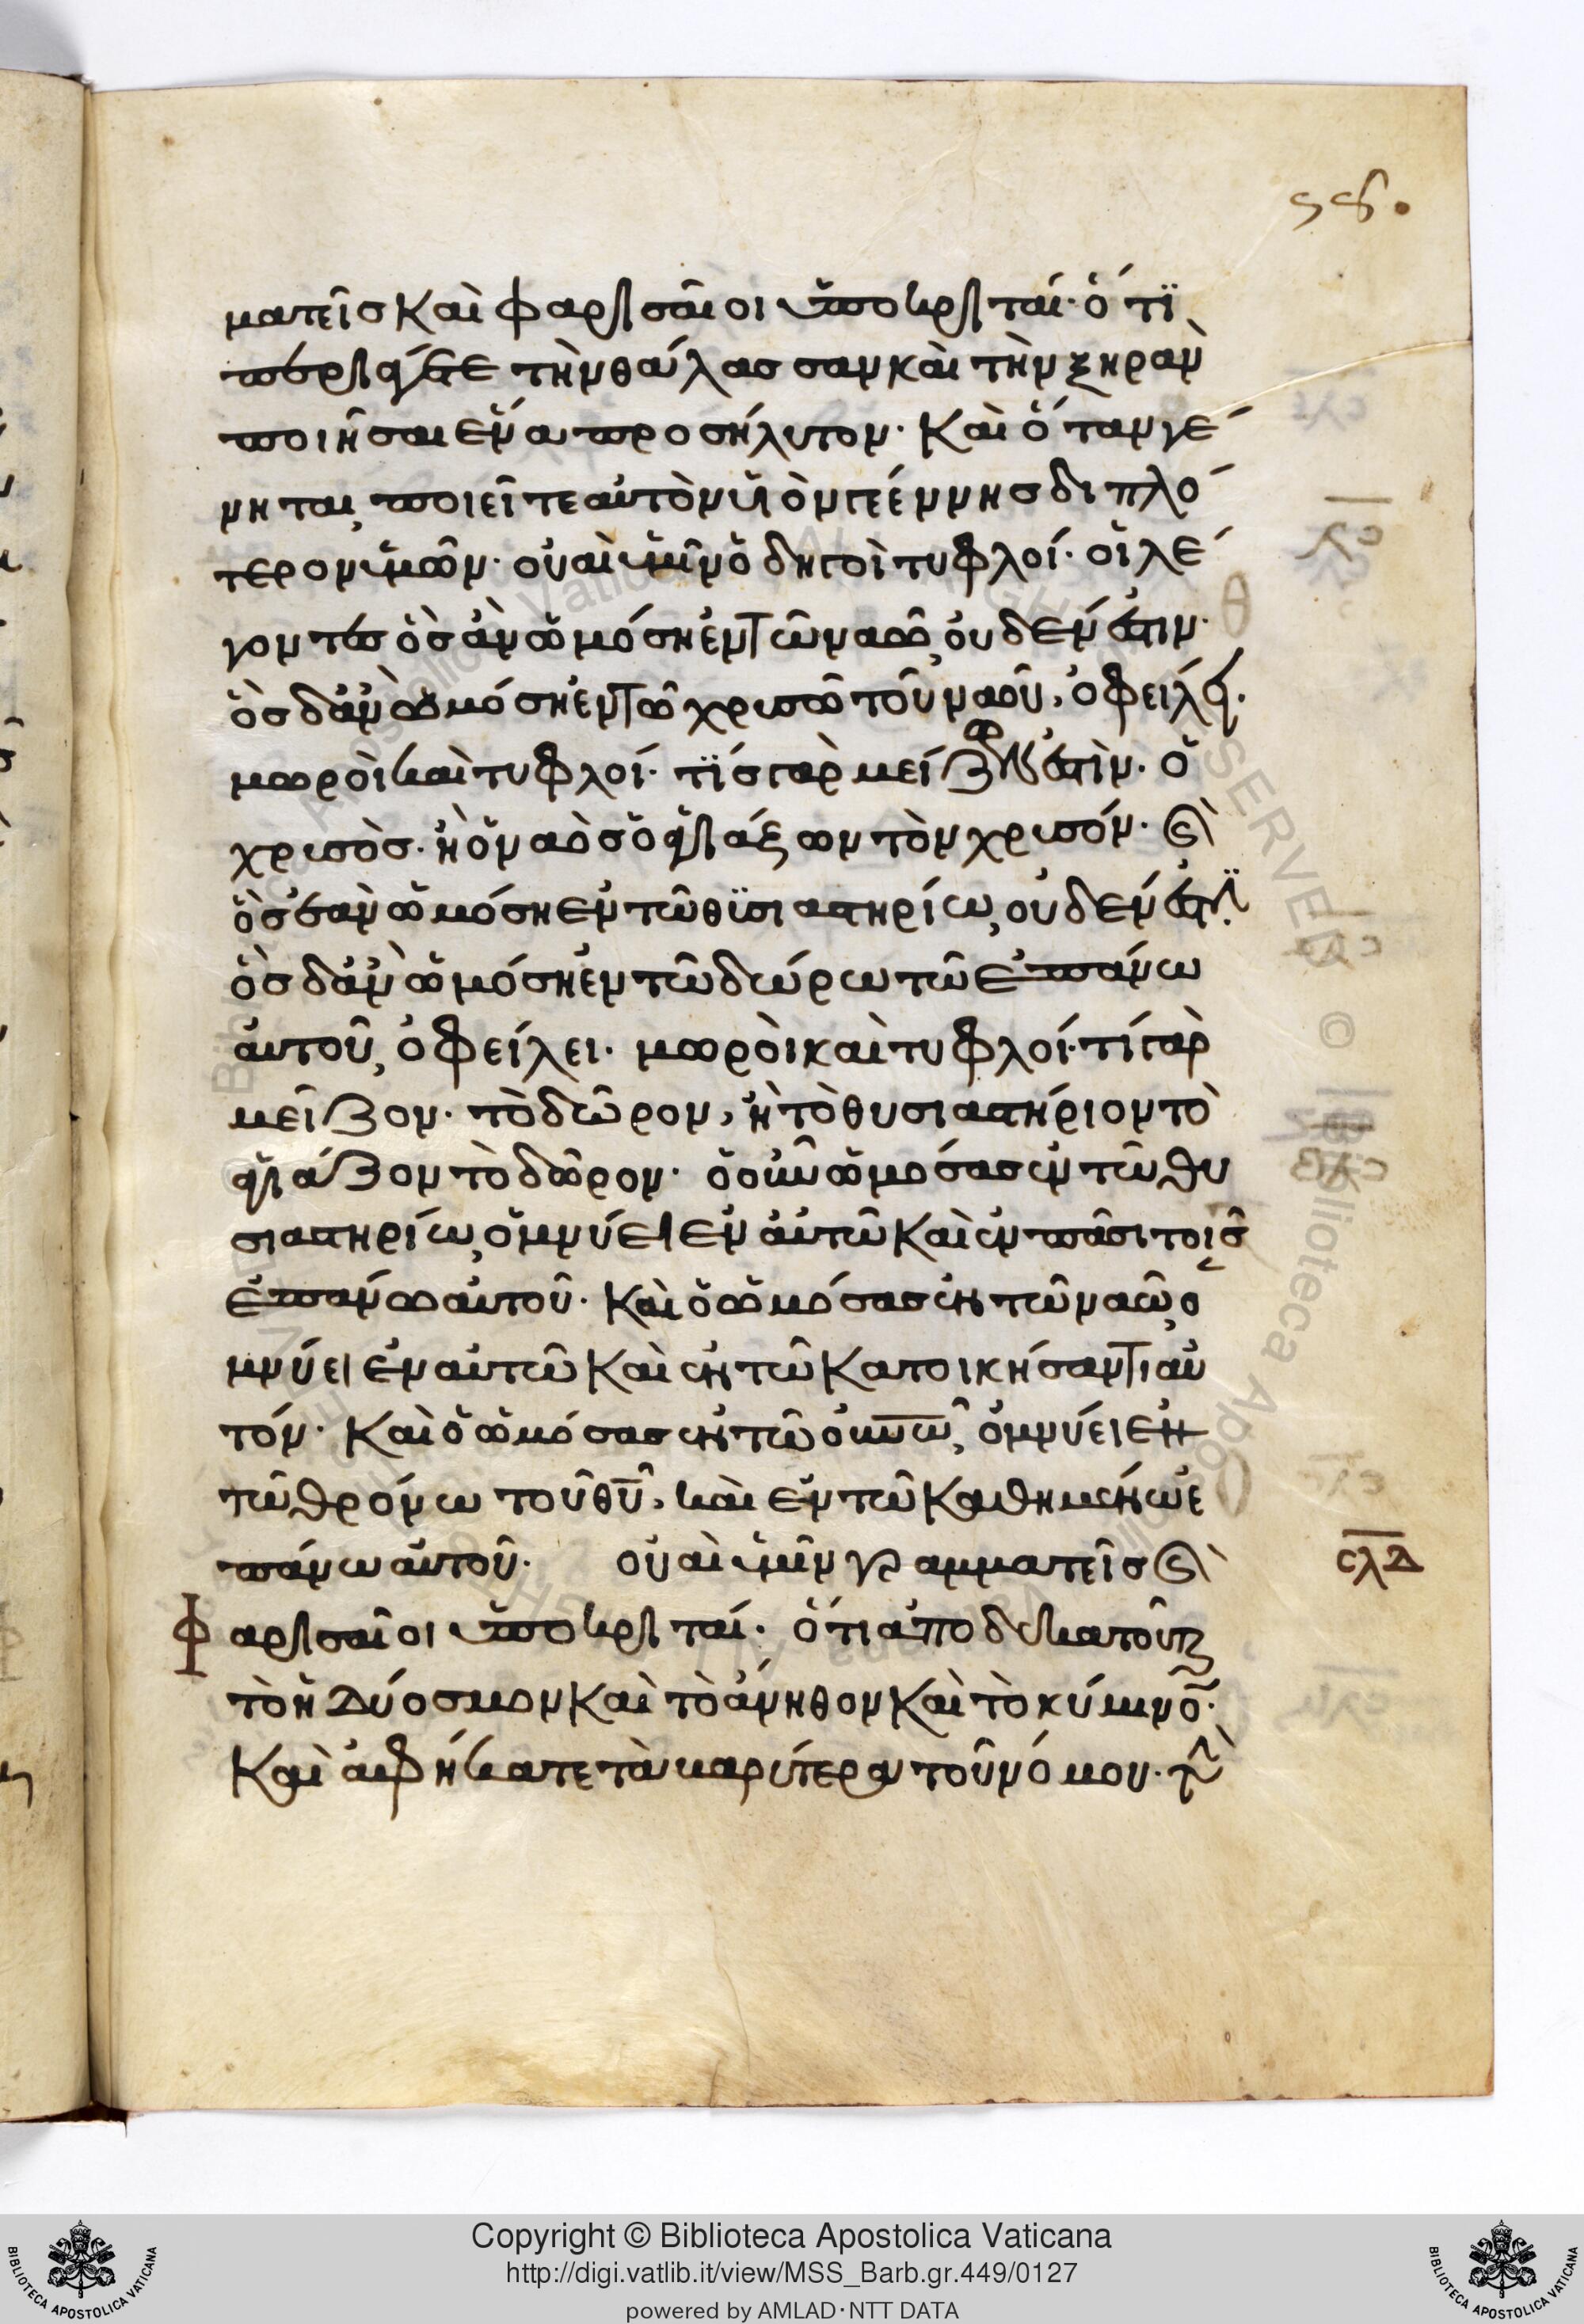 ϟδ.
ματεῖσ καὶ φαρισαῖοι ὑποκριταί· ὅτϊ
περιάγετε τὴν θάλασσαν καὶ τὴν ξηρὰν
ποιῆσαι ἕνα προσήλυτον· καὶ ὅταν γέ
νηται, ποιεῖτε αὐτὸν υἱὸν γεέννησ διπλό
τερον ὑμῶν· οὐαὶ ὑμῖν ὁδηγοὶ τυφλοί· οἱ λέ
γοντεσ ὃσ ἂν ὠμόση ἐν τῶ ναῶ, οὐδέν ἐστιν·
ὃσ δ' ἂν ὠμόση ἐν τῶ χρυσῶ τοῦ ναοῦ, ὀφείλει.
μωροὶ καὶ τυφλοί· τίσ γὰρ μείζων ἐστὶν· ὁ
χρυσὸσ· ἢ ὁ ναὸσ ὁ ἁγιάζων τὸν χρυσόν· ϗ̀
ὃσ ἐὰν ὠμόση ἐν τῶ θϋσιαστηρίω, οὐδέν ἐστϊ.
ὃσ δ' ἂν ὠμόση ἐν τῶ δώρω τῶ ἐπάνω
αὐτοῦ, ὀφείλει· μωροὶ καὶ τυφλοί· τί γὰρ
μεῖζον· τὸ δῶρον, ἢ τὸ θυσιαστήριον τὸ
ἁγιάζον τὸ δῶρον· ὁ οὖν ὠμόσας ἐν τῶ θυ
σιαστηρίω, ὀμνύει ἐν αὐτῶ καὶ ἐν πᾶσι τοῖσ
ἐπάνω αὐτοῦ· καὶ ὁ ὠμόσας ἐν τῶ ναῶ, ὀ
μνύει ἐν αὐτῶ καὶ ἐν τῶ κατοικήσαντι αὐ
τόν· καὶ ὁ ὠμόσας ἐν τῶ οὐνω, ὀμνύει ἐν
τῶ θρόνω τοῦ θυ, καὶ ἐν τῶ καθημένω ἐ
πάνω αὐτοῦ· οὐαὶ ὑμῖν γραμματεῖσ ϗ̀
φαρισαῖοι ὑποκριταί· ὅτι ἀποδεκατοῦτε
τὸ ἡδύοσμον καὶ τὸ ἄνηθον καὶ τὸ κύμινο̅·
καὶ ἀφήκατε τὰ βαρύτερα τοῦ νόμου· τὴν
σλδ
Copyright © Biblioteca Apostolica Vaticana
http://digi.vatlib.it/view/MSS_Barb.gr.449/0127
powered by AMLAD·NTT DATA
BIBLIOTECA APOSTOLICA VATICANA
BIBLIOTECA APOSTOLICA VATICANA